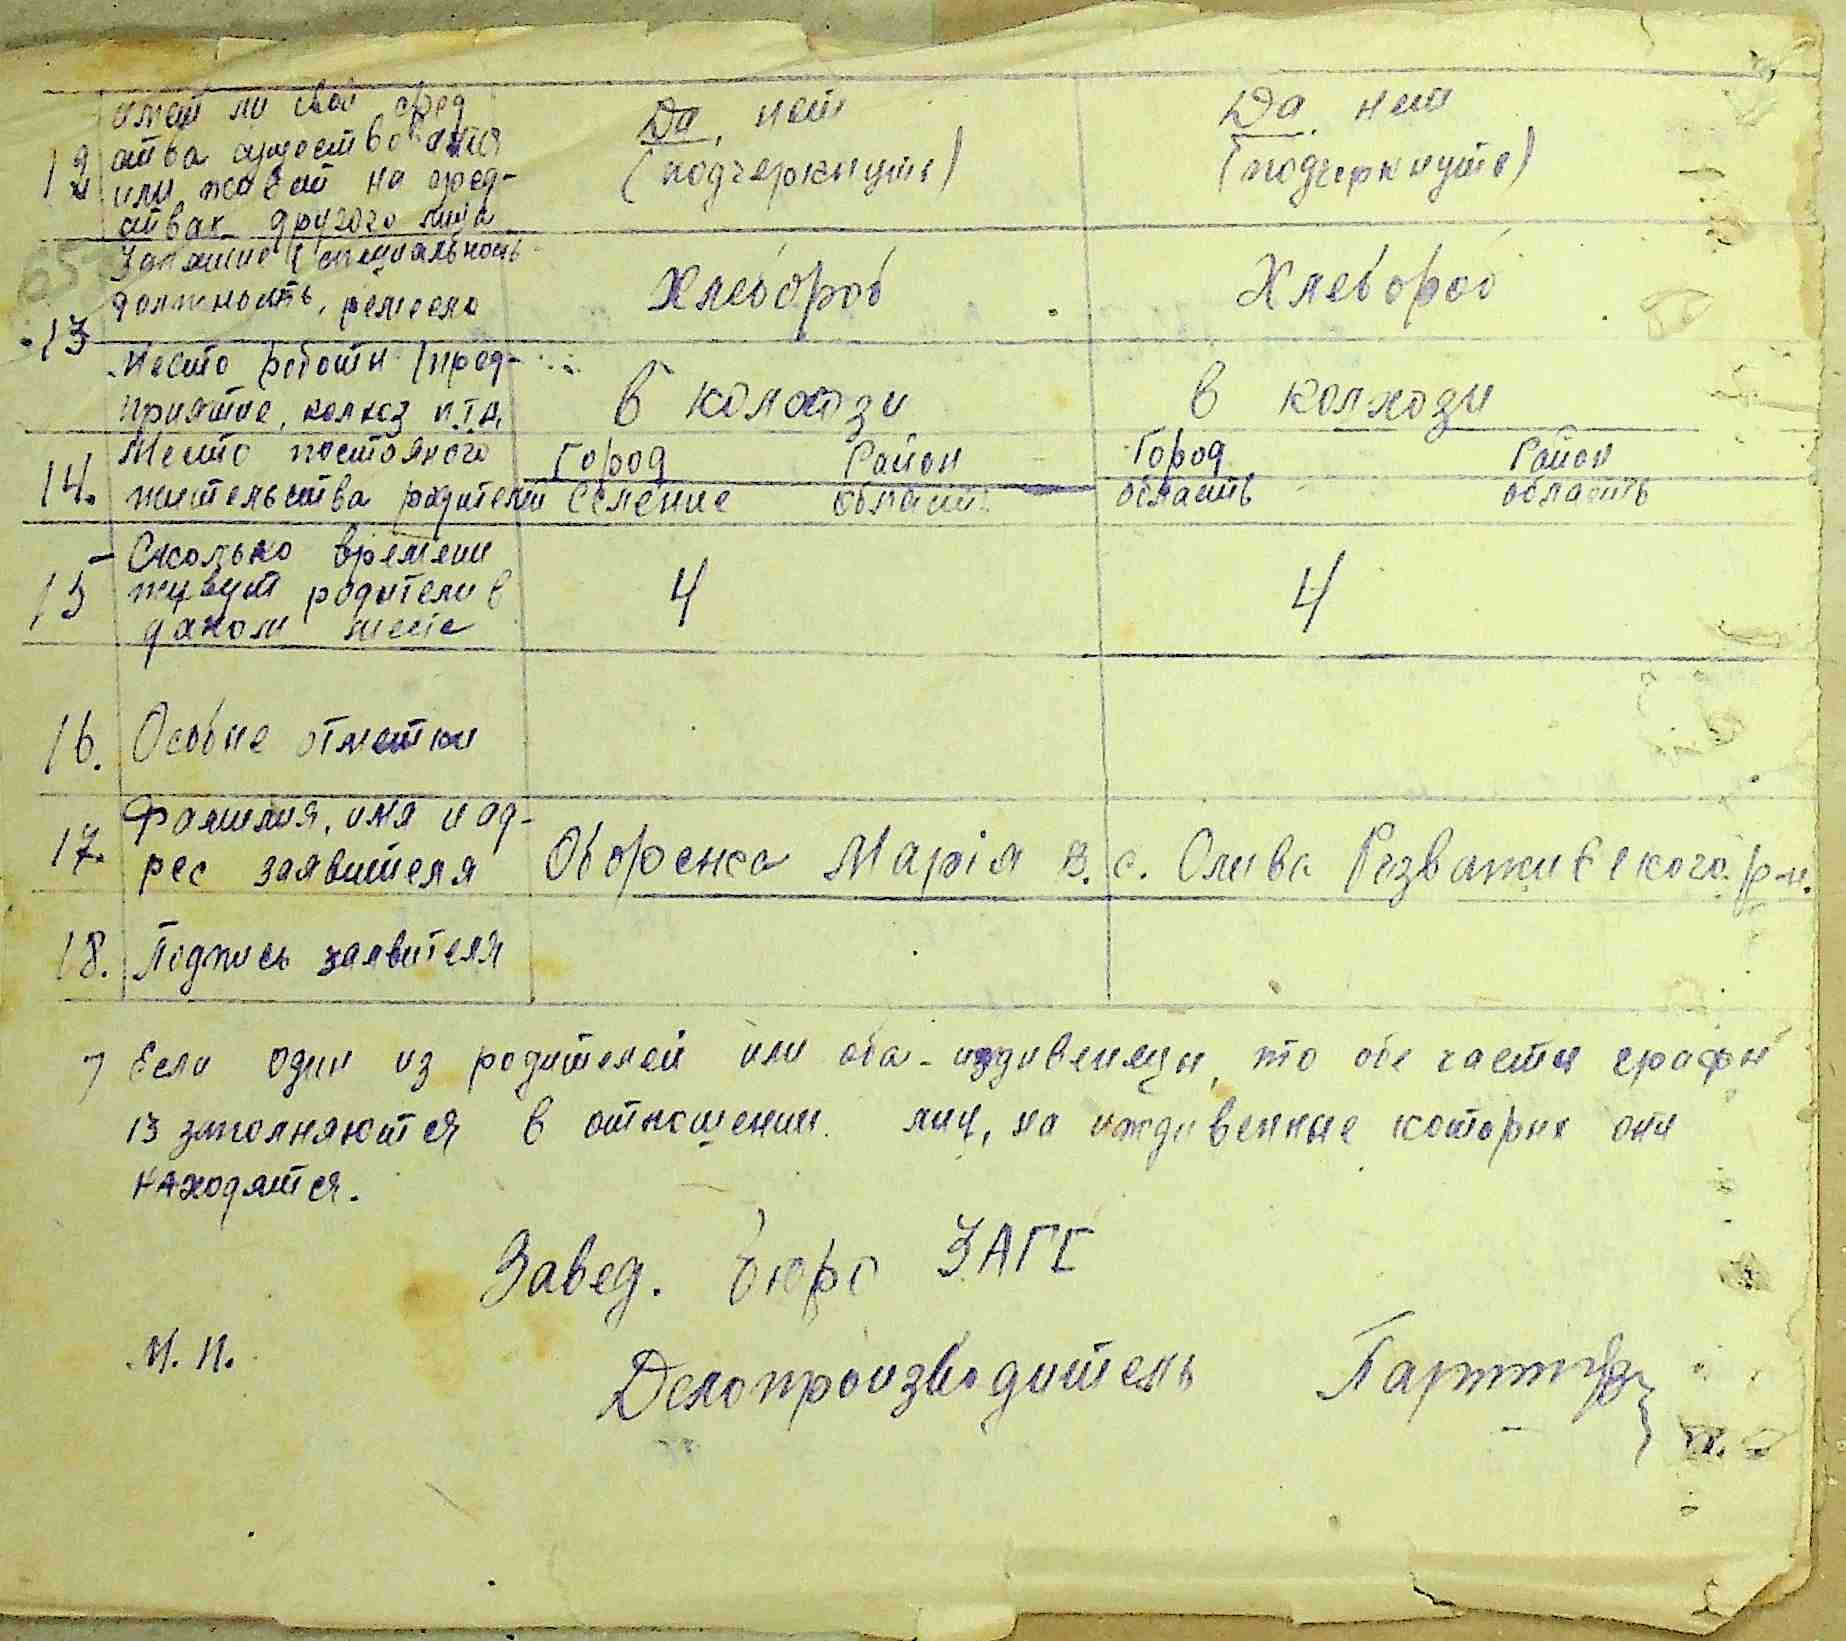 12 имеет ли свои сред
ства существования Да, нет Да, нет
или живет на сред- (подчеркнуть) (подчеркнуть)
ствах другого лица
Занятие (специальность
должность, ремесло Хлебороб Хлебороб
13
Место роботи (пред-
приятие, колхоз и.т.д. в колхози в колхози
14. Место постояного Город Район Город Район
жительства родителей селение область область область
15 Сколько времени
живут родители в 4 4
даном месте
16. Особие отметки
17. Фамилия, имя и ад-
рес заявителя Оборська Марія в. с. Слива Розваживского р-н.
18. Подпись заявителя
Если один из родителей или оба - иждивенци, то обе части графи
13 заполняются в отношении лиц, на иждивение которих они
находятся.
Завед. бюро ЗАГС
М. П.
Делопроизводитель